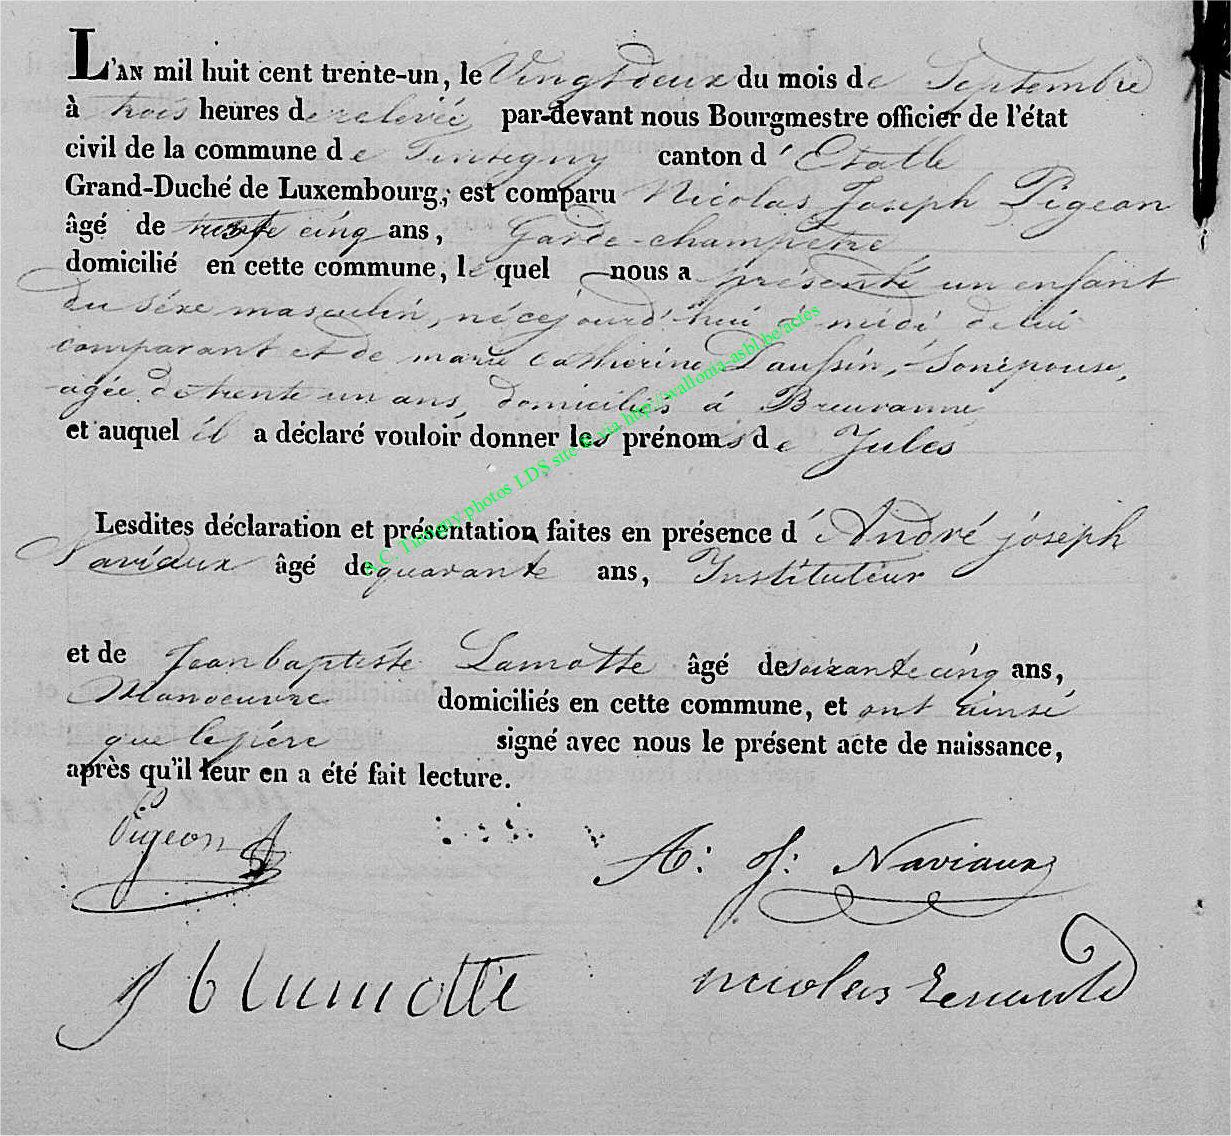 L'AN mil huit cent trente-un, le Vingt deux du mois de Septembre
à trois heures de relevée par-devant nous Bourgmestre officier de l'état
civil de la commune de Tintigny canton d' Etalle
Grand-Duché de Luxembourg, est comparu Nicolas Joseph Pigeon
âgé de trente cinq ans, Garde-champêtre
domicilié en cette commune, lequel nous a présenté un enfant
du séxe masculin, né cejourd'hui à midi de lui
comparant et de marie catherine Laussin, son épouse,
agée de trente un ans, domiciliés à Breuvanne
et auquel il a déclaré vouloir donner les prénoms de Jules
Lesdites déclaration et présentation faites en présence d'André joseph
Naviaux âgé de quarante ans, Instituteur
et de Jean baptiste Lamotte âgé de soixante cinq ans,
Manoeuvre domiciliés en cette commune, et ont ainsi
que le père signé avec nous le présent acte de naissance,
après qu'il leur en a été fait lecture.
Pigeon
A: J: Naviaux
J b lamotte
nicolas
A.C. Tintigny photos LDS site & via http://wallonia-asbl.be/actes